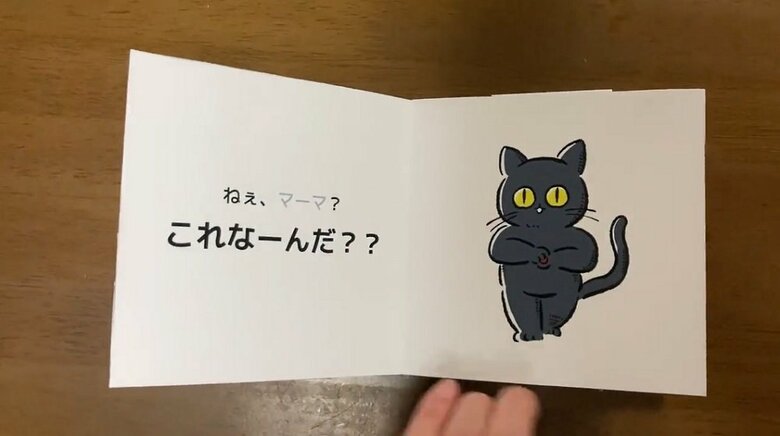 ねぇ、マーマ?
これなーんだ??